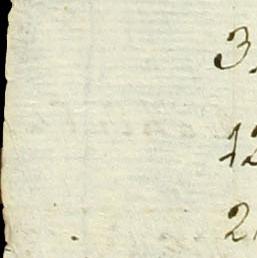 3
12
2